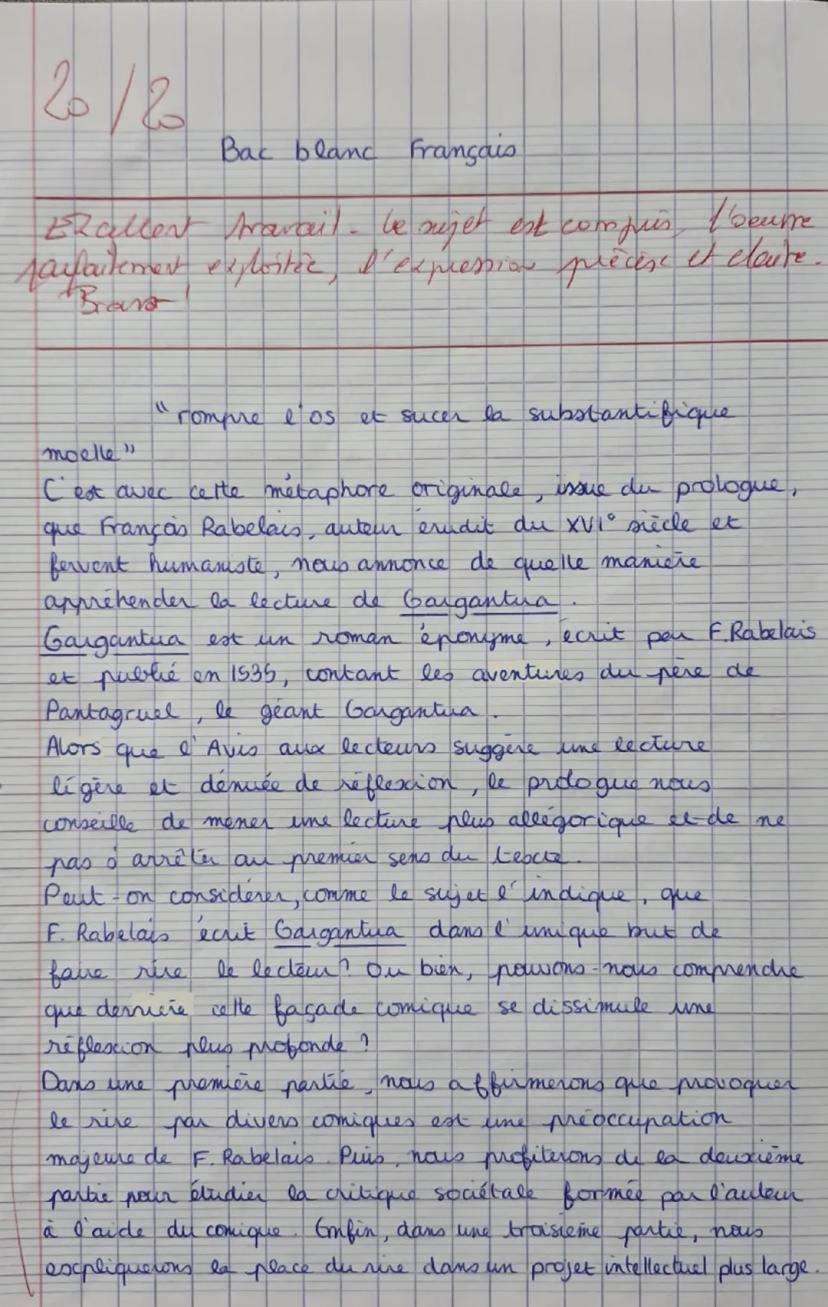 20/20
Bac blanc Français
Excellent travail. Le sujet est compris, l'oeuvre
parfaitement exploitée, l'expression précise et claire.
Bravo !
"rompre l'os et sucer la substantifique
moelle"
C'est avec cette métaphore originale, issue du prologue,
que François Rabelais, auteur érudit du XVI° siècle et
fervent humaniste, nous annonce de quelle manière
appréhender la lecture de Gargantua.
Gargantua est un roman éponyme, écrit par F.Rabelais
et publié en 1535, contant les aventures du père de
Pantagruel, le géant Gargantua.
Alors que l'Avis aux lecteurs suggère une lecture
légère et dénuée de réflexion, le prologue nous
conseille de mener une lecture plus allégorique et de ne
pas s'arrêter au premier sens du texte.
Peut-on considérer, comme le sujet l'indique, que
F. Rabelais écrit Gargantua dans l'unique but de
faire rire le lecteur ? Ou bien, pouvons-nous comprendre
que derrière cette façade comique se dissimule une
réflexion plus profonde ?
Dans une première partie, nous affirmerons que provoquer
le rire par divers comiques est une préoccupation
majeure de F. Rabelais. Puis, nous profiterons de la deuxième
partie pour étudier la critique sociétale formée par l'auteur
à l'aide du comique. Enfin, dans une troisième partie, nous
expliquerons la place du rire dans un projet intellectuel plus large.